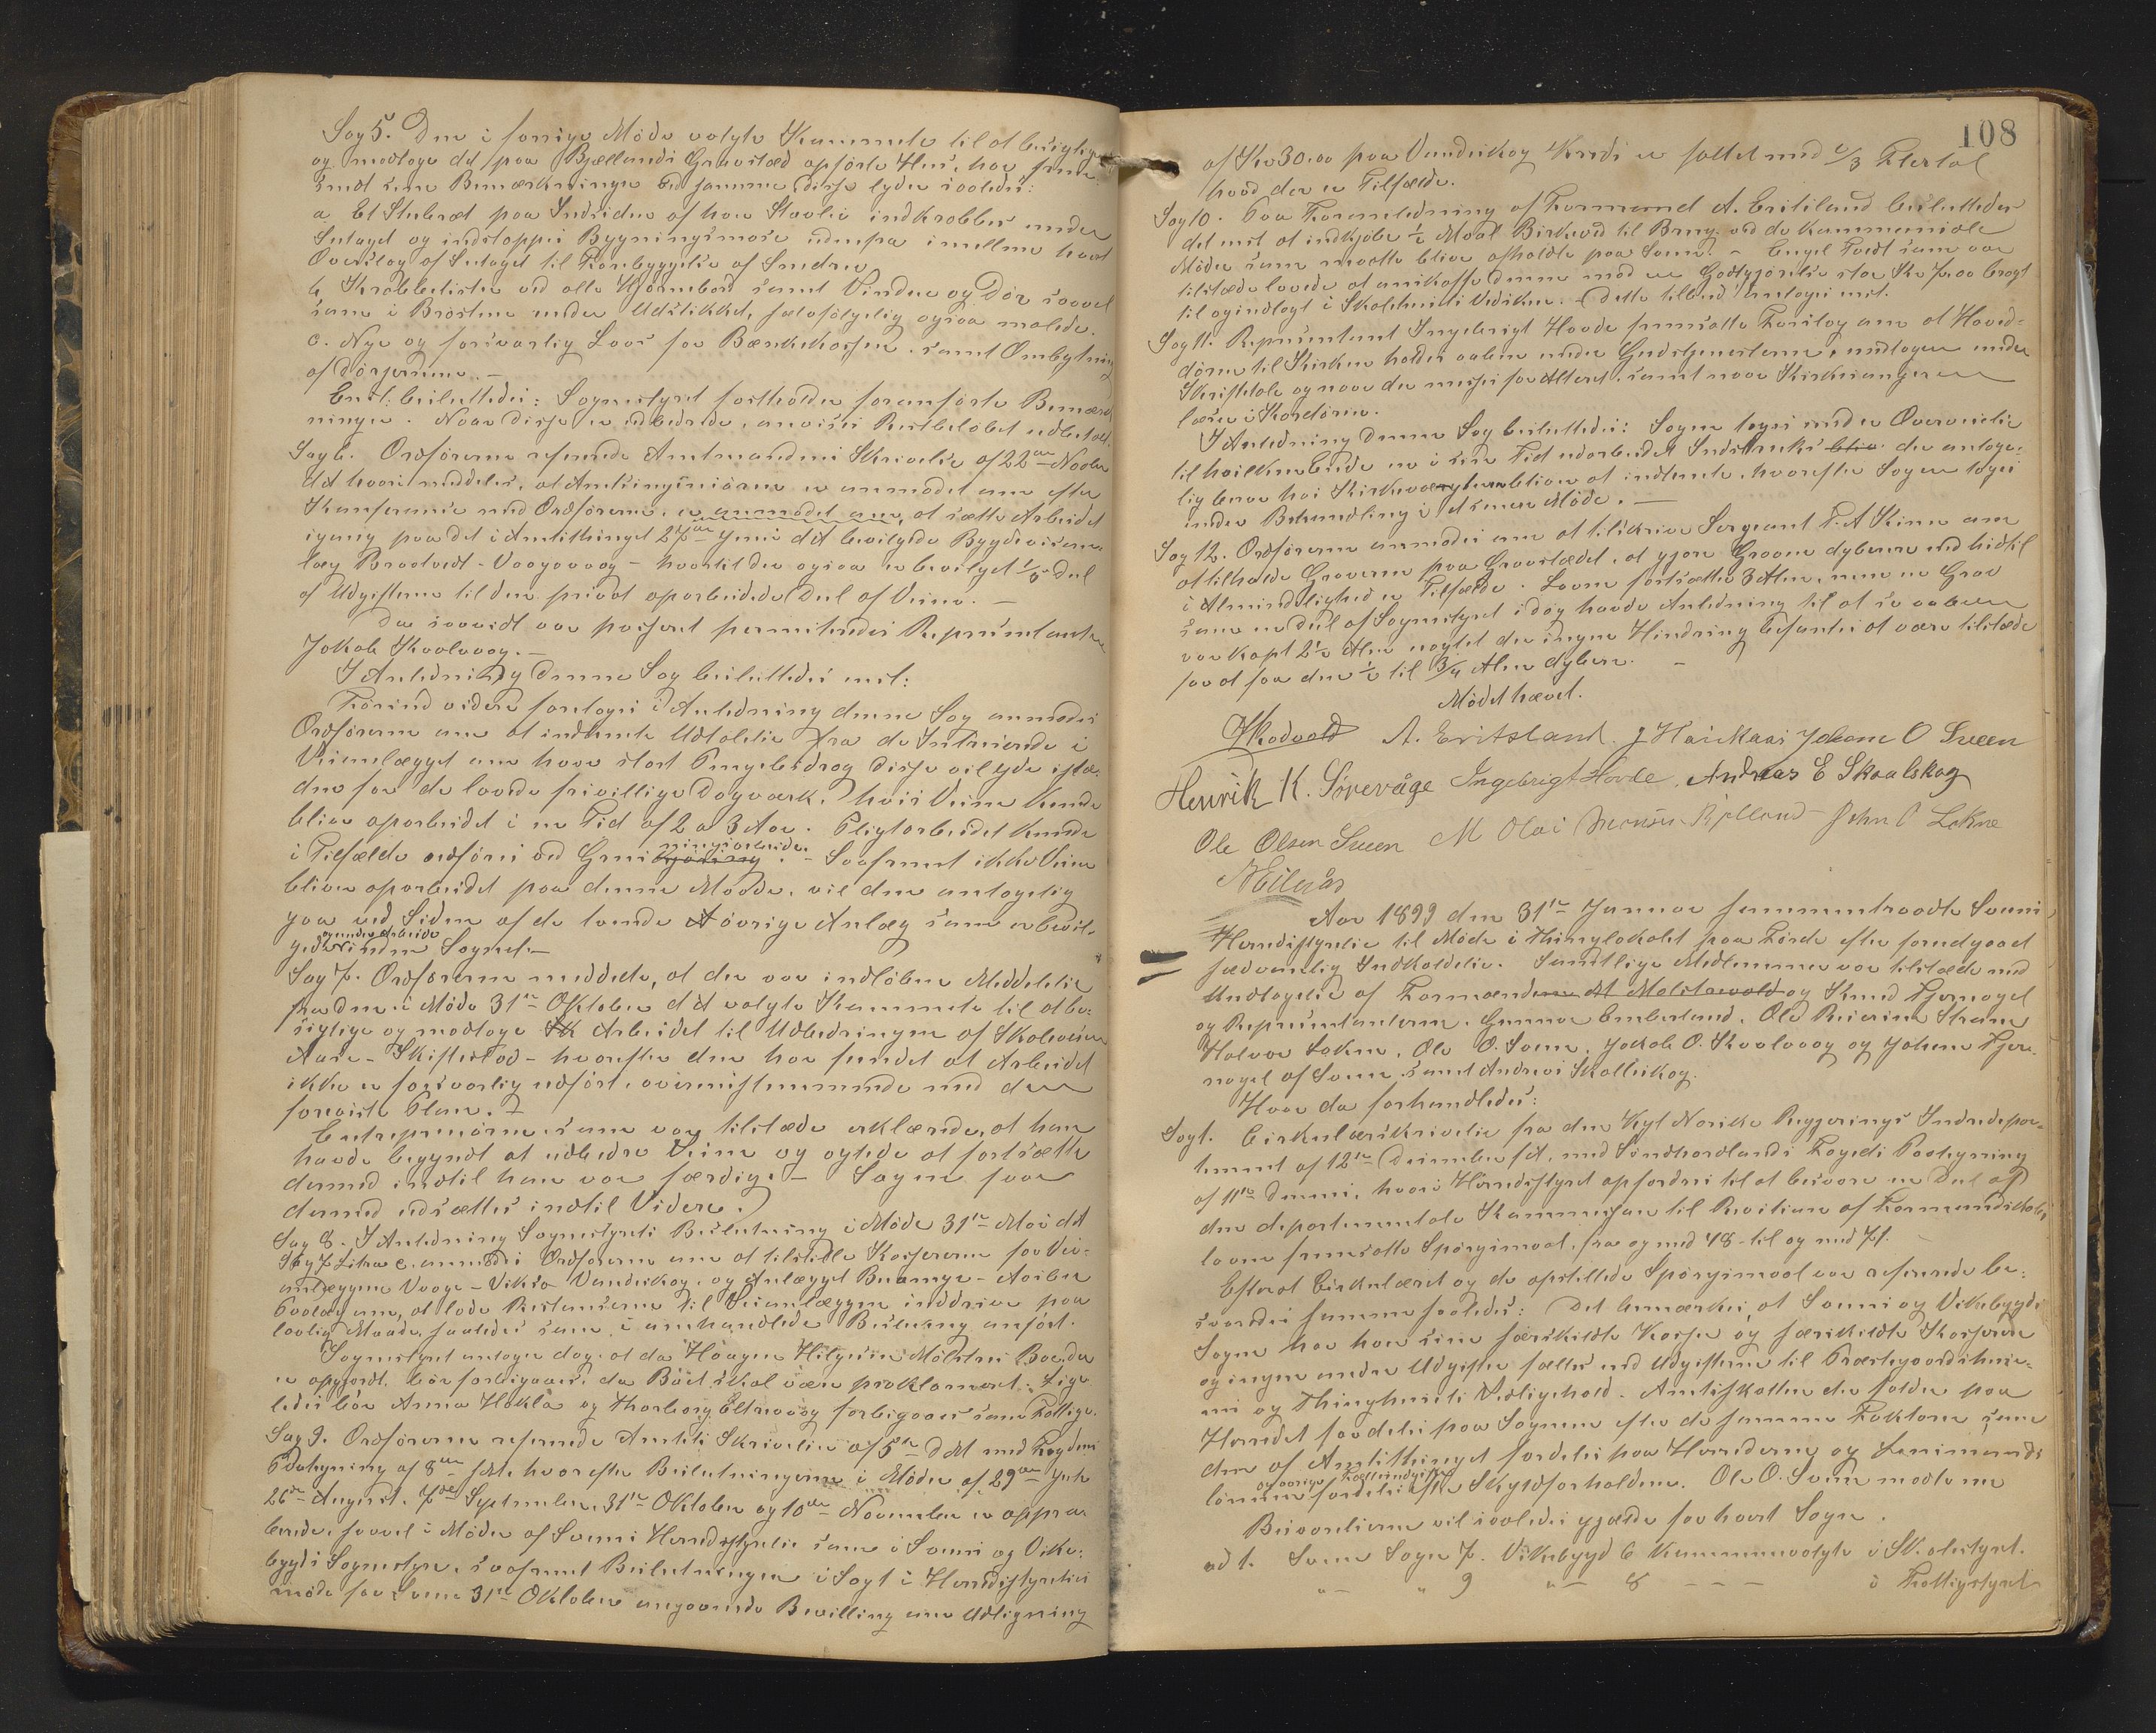 Sag 5. Den i forrige Møde valgte Kommite til at besigtige
og modtage det paa Bjællands Gravsted opførte Hus, har frem-
sendt sine Bemærkninger ved samme disse lyder saaledes:
a. Et Stubræt paa Indsiden af hver Stavlei indkrobbes under
Sutaget og indstoppes Bygningsmose udenpaa imellem hvert
Overslag af Sutaget til Forebyggelse af Snedrev.
b. Krobbelister ved alle Hjørnebord samt Vindue og Dør saavel
som i Brøstene under Udstikket, selvfølgelig ogsaa malede.
c. Nye og forsvarlig Laas for Bænkekassen, samt Ombytning
af Dørjernene. —
Enst. besluttedes: Sognestyret fastholder foranførte Bemærk-
ninger. Naar disse er udbedrede, anvises Restbeløbet udbetalt.
Sag 6. Ordføreren refererede Amtmandens Skrivelse af 22de Novbr
d.A hvori meddeles, at Amtsingeniøren er anmodet om efter
Konferanse med Ordføreren, er anmodet om, at sætte Arbeidet
igang paa det i Amtsthinget 27de Juni d.A bevilgede Bygdeveisan-
læg Brootvedt - Vaagavaag - hvortil der ogsaa er bevilget 1/5 Del
af Udgifterne til den privat oparbeidede Del af Veien. —
Da saavidt var passeret permiteredes Repræsentanten
Jakob Kvalvaag. —
I Anledning denne Sag besluttedes enst:
Førend videre foretages i Anledning denne Sag anmodes
Ordføreren om at indhente Udtalelse fra de Interesserede i
Veianlægget om hvor stort Pengebidrag disse vil yde iste-
den for de lovede frivillige Dagværk, hvis Veien kunde
blive oparbeidet i en Tid af 2 a 3 Aar. Pligtarbeidet kunde
i Tilfælde udføres ved Grus
ningsarbeide. - Saafremt ikke Veien
bliver oparbeidet paa denne Maade, vil den antagelig
gaa ved Siden af de tvende øvrige Anlæg som er bevil-
og under Arbeide
gede inden Sognet. —
Sag 7. Ordføreren meddelte, at der var indløben Meddelelse
fra den i Møde 31te Oktober d.A valgte Kommite til at be-
sigtige og modtage Arbeidet til Udbedringen af Skoleveien
Aase - Skiftestad - hvorefter den har fundet at Arbeidet
ikke er forsvarlig udført, overensstemmende med den
foreviste Plan.
Entreprenøren som var tilstede erklærede, at han
havde begyndt at udbedre Veien og agtede at fortsætte
dermed indtil han var færdig. - Sagen faar
dermed udsættes indtil Videre.
Sag 8. I Anledning Sognestyrets Beslutning i Møde 31te Mai d.A
Sag 7 Litra c. anmodes Ordføreren om at tilstille Kassereren for Vei-
anlæggene Vaage - Viksø Vandaskog, og Anlægget Buamyr -
, at lade Restanserne til Veianlæggene inddrive paa
lovlig Maade, saaledes som i omhandlede Beslutning anført.
Sognestyret antager dog, at da Haagen Helgesen Mølstres Bo endnu
er opgjordt bør forbigaaes, da Boet skal være proklameret. Lige-
ledes bør Anna Hokla og Thorborg Eltravaag forbigaaes som Fattige.
Sag 9. Ordføreren refererede Amtets Skrivelse af 5te D.M med Fogdens
Paategning af 8de s.M. hvorefter Beslutningerne i Møder af 29de Juli
26de August, 7de September, 31te Oktober og 10de November er appro-
berede, saavel i Møder af Sveens Herredsstyrelse som i Sveens og Vike-
bygds Sognestyre, saafremt Beslutningen i Sag 1 i Herredsstyrelses
møde for Sveen 31te Oktober angaaende Bevilling om Udligning
108
af Kr 30.00 paa Vandaskog Kreds er fattet med 2/3 Flertal
hvad der er Tilfælde.
Sag 10. Paa Foranledning af Formand A. Eritsland besluttedes
det enst at indkjøbe 1/2 Maal Birkeved til Brug ved de Kommunale
Møder som maatte blive afholdte paa Sveen. - Engel Tvedt som var
tilstede lovede at anskaffe denne mod en Godtgjørelse stor Kr 7.00 bragt
til og indlagt i Skolehusets Vedskur. - Dette tilbud antages enst.
Sag 11. Repræsentant Ingebrigt Hovde fremsatte Forslag om at Hoved-
døren til Kirken holdes aaben under Gudstjenesterne, undtagen under
Skriftetale og naar der messes for Alteret, samt naar Kirkesangeren
læser i Kordøren.
I Anledning denne Sag besluttedes: Sagen tages under Overveielse
til hvilken Ende en i sin Tid udarbeidet Instruks der antage-
lig beror hos Kirkeværgen bliver at indhente, hvorefter Sagen tages
under Behandling i et senere Møde. —
Sag 12. Ordføreren anmodes om at tilskrive Sergeant T. A Kinn om
at tilholde Graveren paa Gravstedet, at gjøre Gravene dybere end hidtil
i Almindelighed er Tilfælde. Loven fastsætter 3 Alen, men en Grav
som en Del af Sognestyret i dag havde Anledning til at se aaben
var kapt 2 1/2 Alen uagtet der ingen Hindring befantes at være tilstede
for at faa den 1/2 til 3/4 Alen dybere. —
Mødet hævet.
A. Eritsland. J Haukaas Johan O Sveen
Henrik K. Sørevåge Ingebrigt Hovde, Andreas E Skaalskog
Ole Olsen Sveen M Olai Monsen Bjelland - John O Lokna
Aar 1899 den 31te Januar sammentraadte Sveens
Herredsstyrelse til Møde i Thinglokalet paa Førde efter forudgaaet
sædvanlig Indkaldelse. Samtlige Medlemmer var tilstede med
Undtagelse af Formændene A Molstavold og Knud Tjernagel
og Repræsentanterne, Gunnar Emberland, Ole Reiersen Strøm
Halvor Lokna, Ole O. Sveen, Jakob O. Kvalvaag og Johan Tjer-
nagel af Sveen samt Andreas Skalleskog.
Hvor da forhandledes:
Sag 1. Cirkulærskrivelse fra den Kgl Norske Regjerings Indredepar-
tement af 12te Desember f.A. med Søndhordlands Fogeds Paategning
af 11te dennes, hvori Herredsstyret opfordres til at besvare en Del af
den departementale Kommission til Revision af Formandskabs-
lovene fremsatte Spørgsmaal, fra og med 48 - til og med 71.
Efterat Cirkulæret og de opstillede Spørgsmaal var refererede be-
svaredes samme saaledes: Det bemærkes at Sveens og Vikebygds
Sogne har hver sin særskildte Kasse og særskildte Kasserere
og ingen andre Udgifter fælles end Udgifterne til Præstegaardshuse-
ne og Thinghusets Vedligehold. Amtsskatten der falder paa
Herredet fordeles paa Sognene efter de samme Faktorer som
den af Amtsthinget fordeles paa Herrederne og Lensmands
og øvrige Fællesudgifter
lønnen fordeles efter Skyldforholdene. Ole O. Sveen mødte nu
Besvarelserne vil saaledes gjælde for hvert Sogn.
ad 1. Sveen Sogn 7. Vikebygd 6 Kommunevalgte i Skolestyret.
" — " 9 " — 8 — — — i Fattigstyret